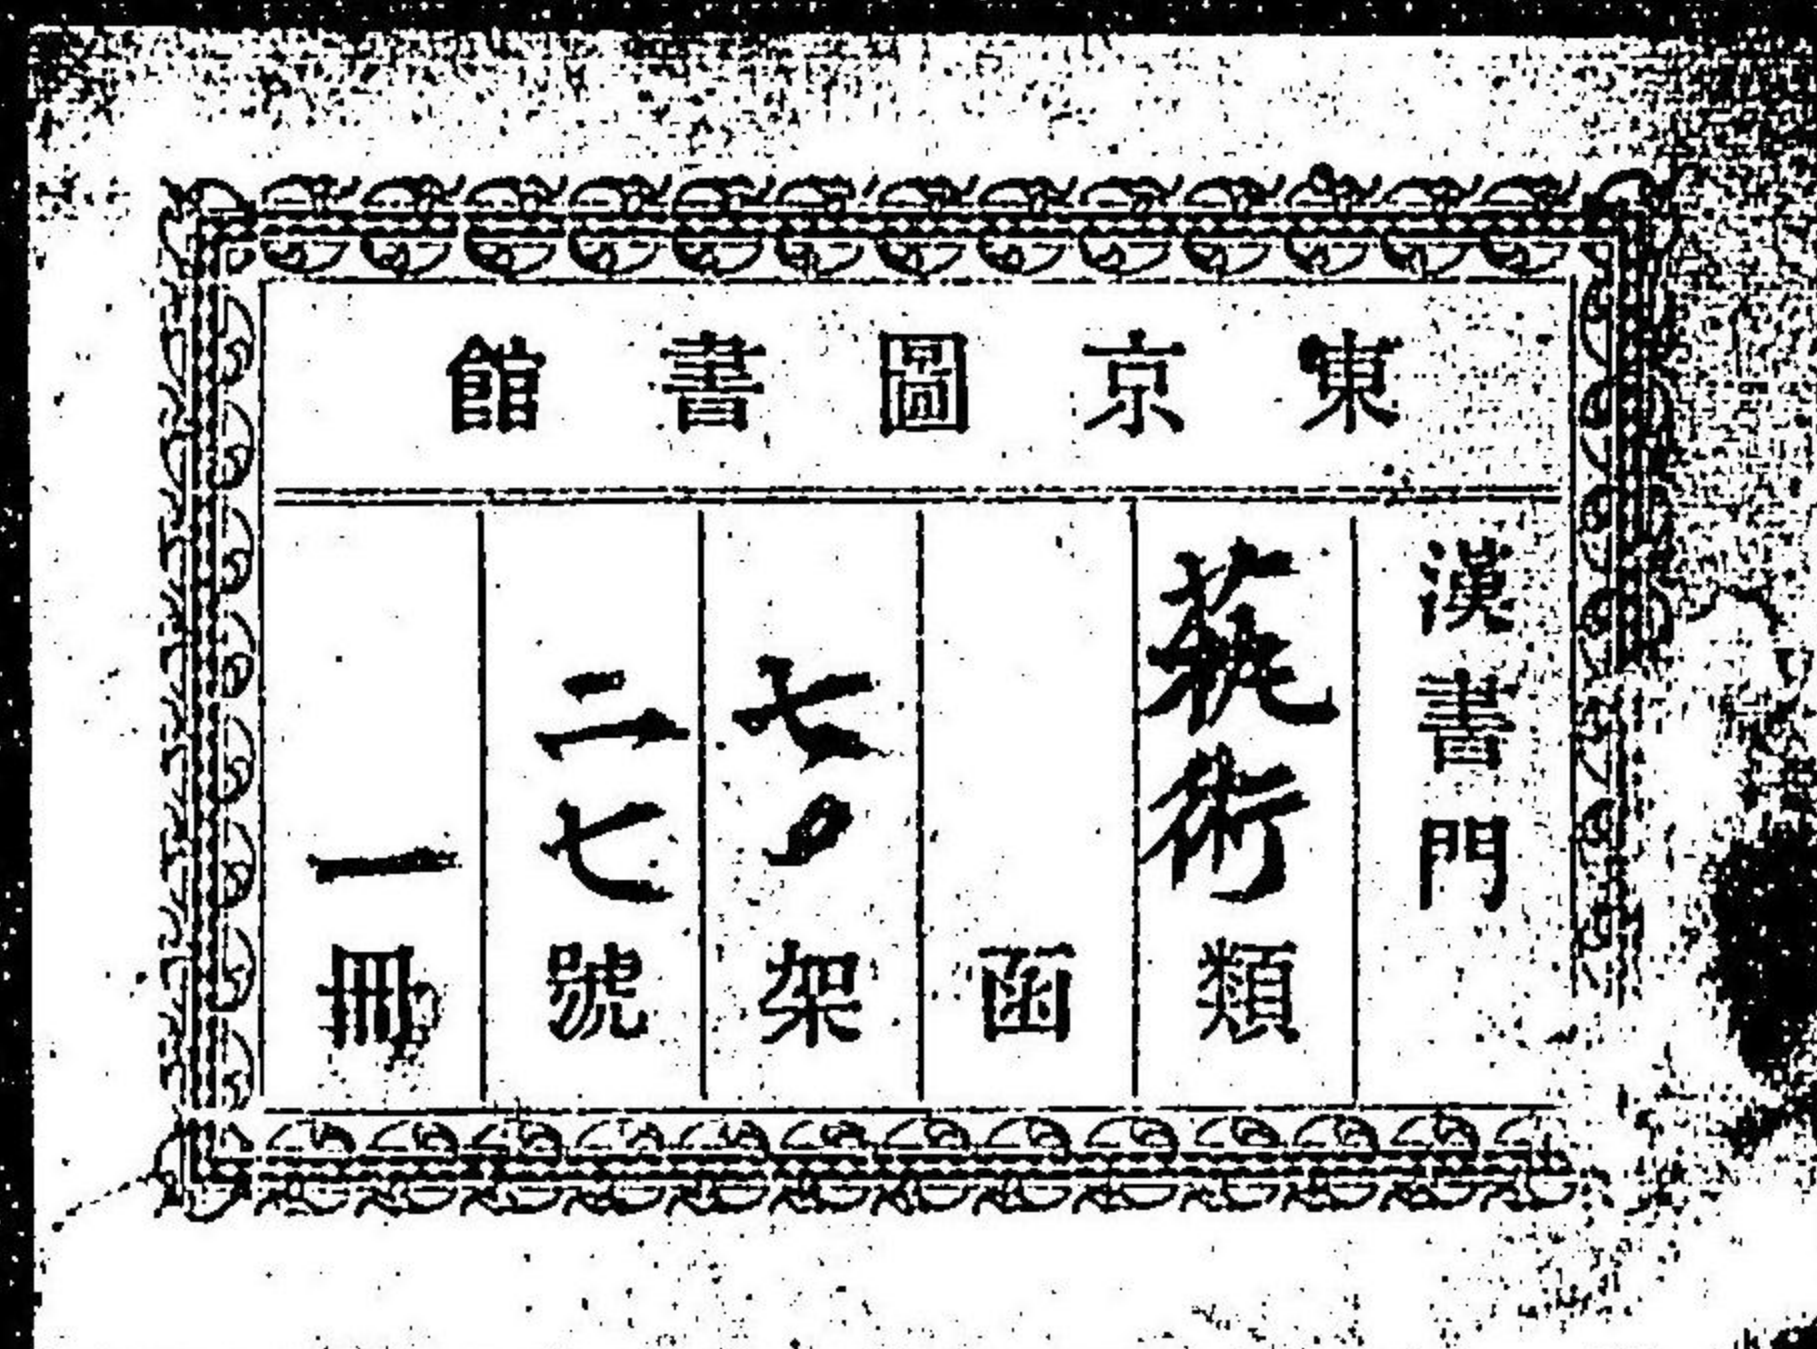 東京圖書館
漢書門
藝術類
函
七〇架
二七號
一冊